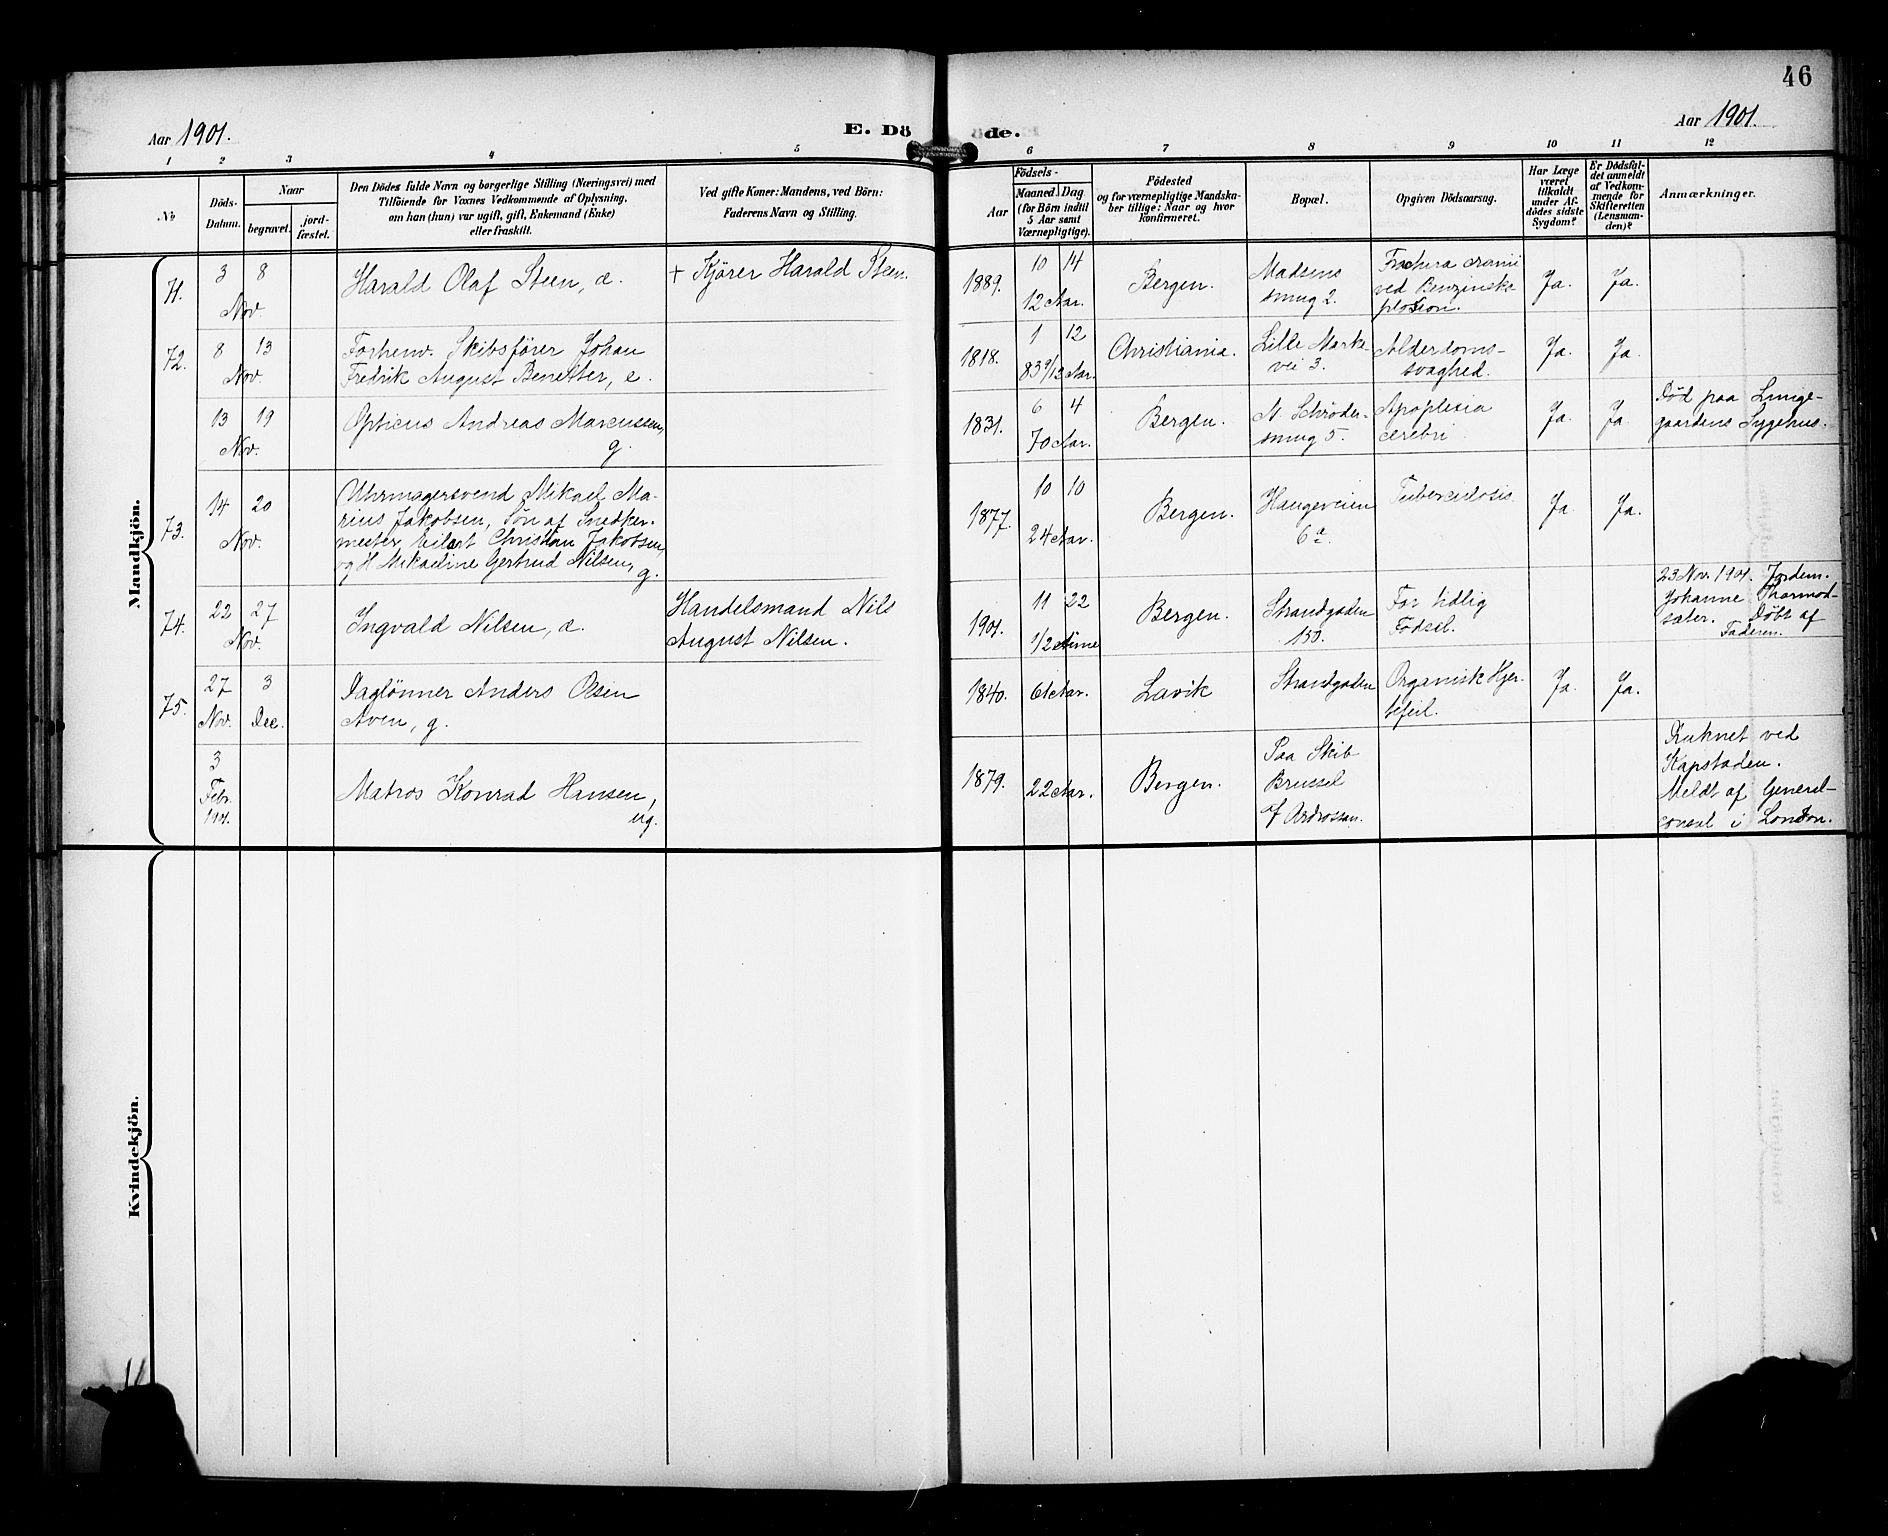 46
Aar 1901.
E. Dö
de.
Aar 1901.
1 2 3 4 5 6 7 8 9 10 11 12
No
Döds-
Datum.
Naar
begravet.
jord-
fæstet.
Den Dödes fulde Navn og borgerlige Stilling (Næringsvei) med
Tilföiende for Voxnes Vedkommende af Oplysning,
om han (hun) var ugift, gift, Enkemand (Enke)
eller fraskilt.
Ved gifte Koner: Mandens, ved Börn:
Faderens Navn og Stilling.
Födsels-
Aar
Maaned. Dag
(for Börn indtil
5 Aar samt
Værnepligtige).
Födested
og for værnepligtige Mandska-
ber tillige: Naar og hvor
konfirmeret.
Bopæl.
Opgiven Dödsaarsag.
Har Læge
været
tilkaldt
under Af-
dödes sidste
Sygdom?
Er Dödsfal-
det anmeldt
af Vedkom-
mende for
Skifteretten
(Lensman-
den)?
Anmærkninger.
Mandkjön.
71.
3 8
Nov
Harald Olaf Steen,
+ Kjører Harald Steen.
1889.
10 14
12 Aar.
Bergen.
Madsens
smug 2.
Fractura cranii
ved Benzineks-
plosion.
Ja. Ja.
72.
8 13
Nov.
Forhenv. Skibsfører Johan
Fredrik August Benetter, e.
1818.
1 12
83 9/12 Aar.
Christiania.
Lille Marke-
vei 3.
Alderdoms-
svaghed.
Ja. Ja.
13 19
Nov.
Opticus Andreas Marcussen,
g.
1831.
6 4
70 Aar.
Bergen.
A. Schrøder-
smug 5.
Apoplexia
cerebri
Ja. Ja.
Død paa Lunge-
gaardens Sygehus.
73.
14 20
Nov.
Uhrmagersvend Mikael Ma-
rius Jakobsen, Søn af Snedker-
mester Eilert Christian Jakobsen
og H Mikaeline Gertrud Nilsen, g.
1877.
10 10
24 Aar.
Bergen.
Haugeveien
6 a.
Tuberculosis
Ja. Ja.
74.
22 27
Nov.
Ingvald Nilsen,
Handelsmand Nils
August Nilsen.
1901.
11 22
1/2 Time
Bergen.
Strandgaden
150.
For tidlig
Fødsel.
23 Nov. 1901. Jordem.
Johanne Thormod-
sæter. Døbt af
Faderen.
75.
27 3
Nov. Dec.
Daglønner Anders Olsen
Aven, g.
1840.
61 Aar.
Lavik
Strandgaden
Organisk Hjer-
tefeil.
Ja. Ja.
3
Febr.
1901.
Matros Konrad Hansen,
ug.
1879.
22 Aar.
Bergen.
Paa Skib
Brussel
af Ardrossan.
Druknet ved
Kapstaden.
Meldt af General-
consul i London.
Kvindekjön.